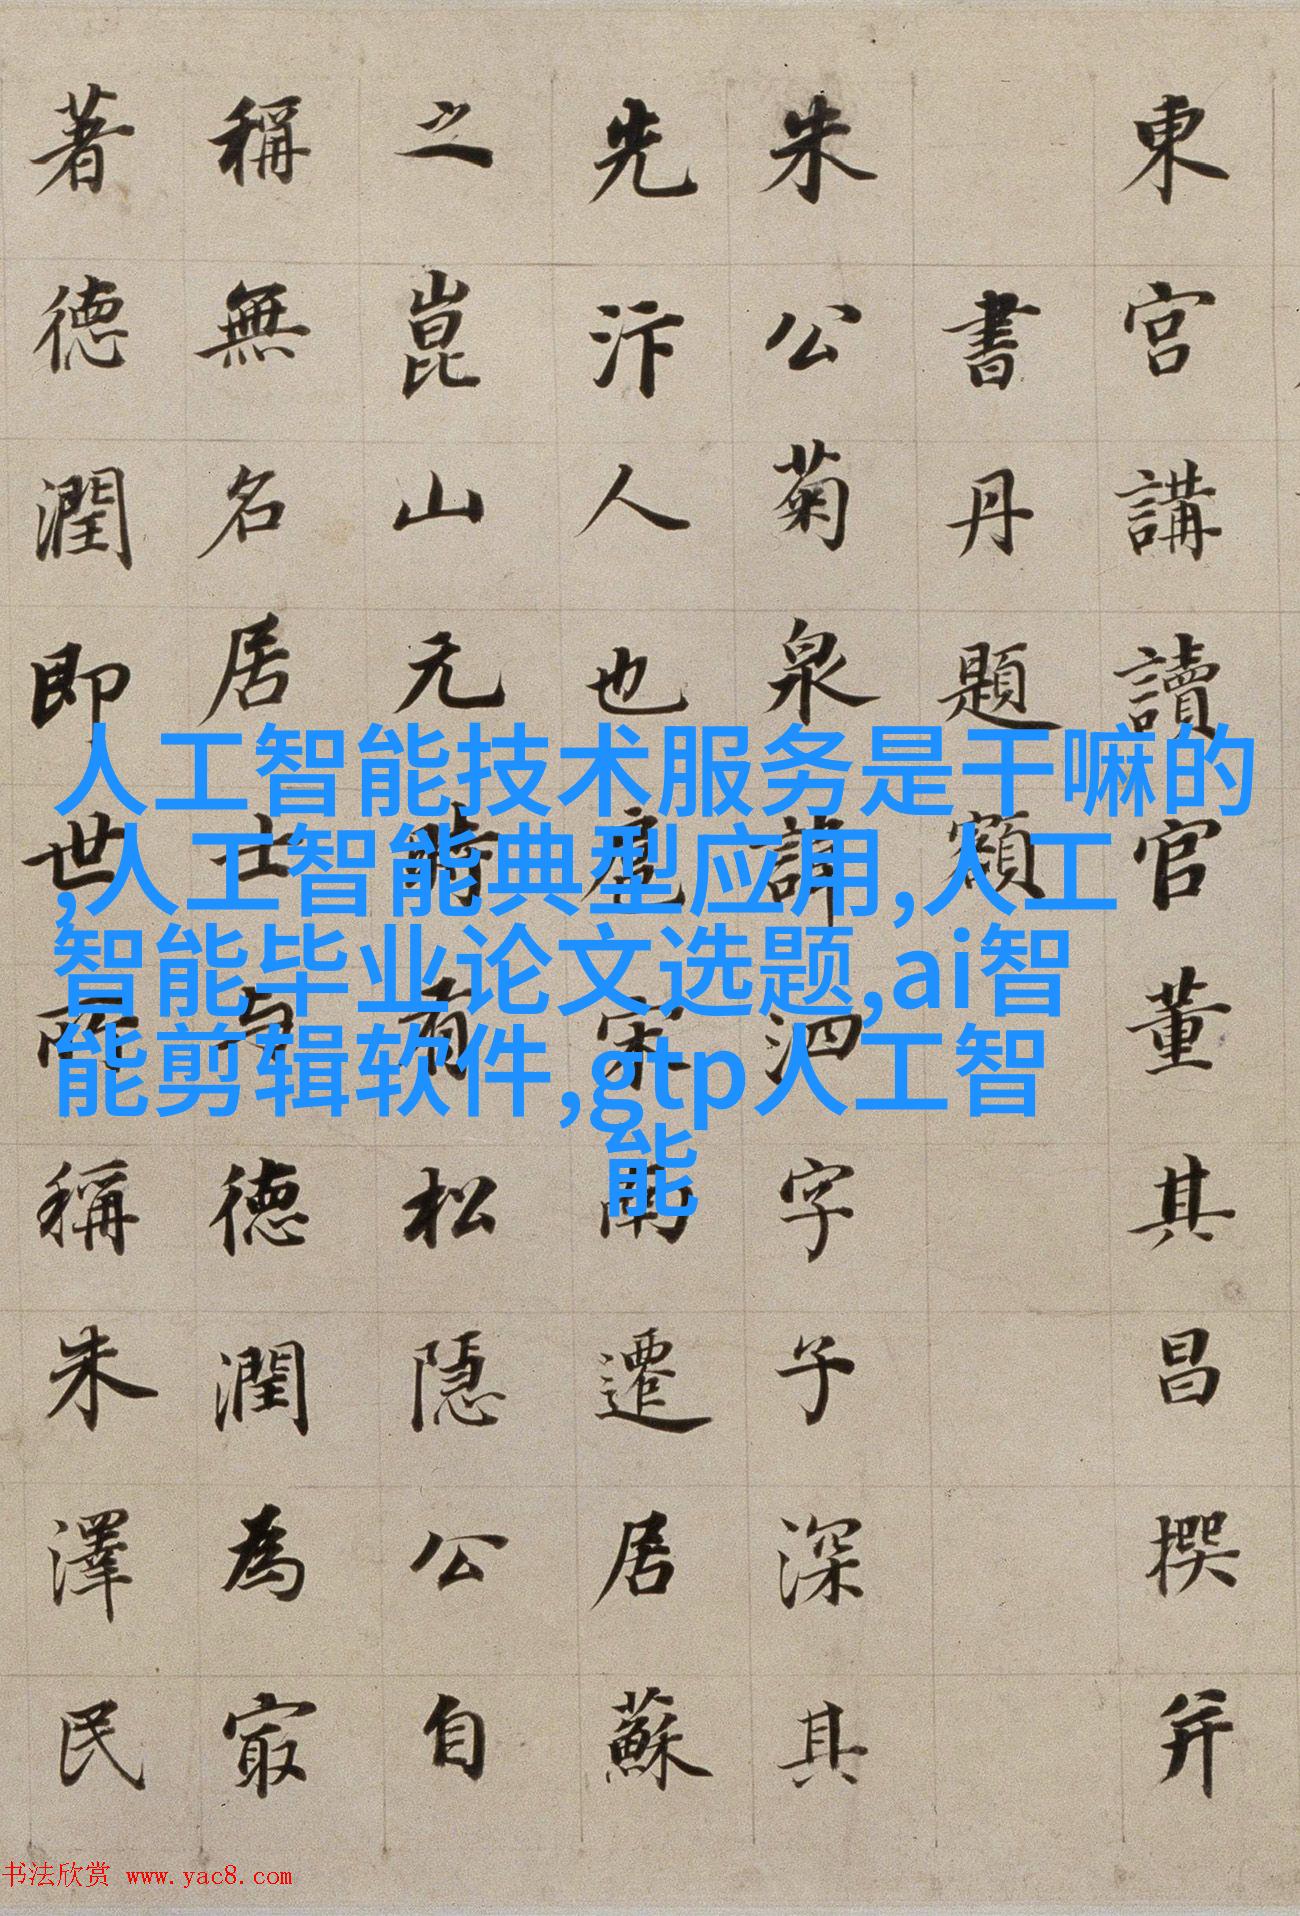 東宮講讀官董其昌撰并
書丹題額
朱公菊泉諱泗字子深其
先汴人也扈宋南遷居蘇
之崑山元時有松隱公自
稱無名居士与德潤為冣
著德潤即世所稱朱澤民
人工智能技术服务是干嘛的
,人工智能典型应用,人工
智能毕业论文选题,ai智
能剪辑软件,gtp人工智
能
书法欣赏 www.yac8.com